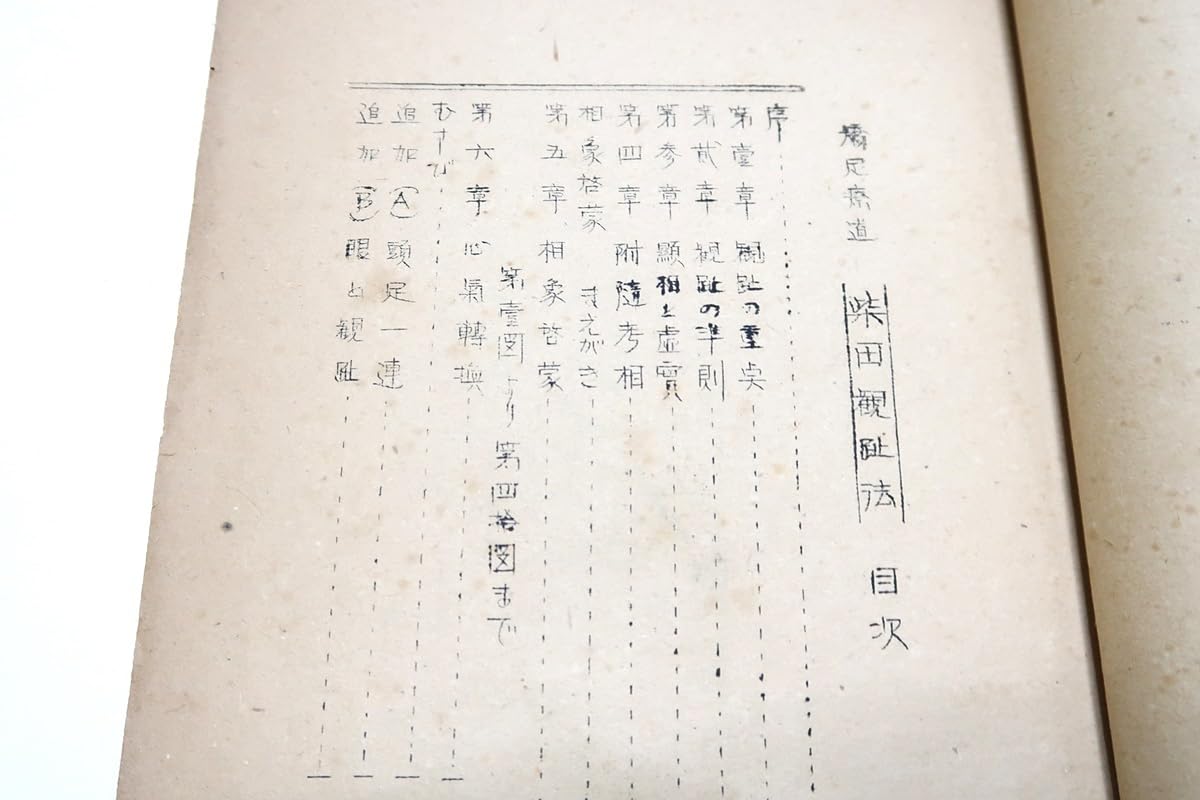 矯足療道 柴田観趾法 目次
序
第壹章 観趾の重点
第貮章 観趾の準則
第参章 顯相と虚實
第四章 附隨考相
相象啓蒙 まえがき
第五章 相象啓蒙
第壹図より第四拾図まで
第六章 心氣轉換
むすび
追加 (A) 頭足一連
追加 (B) 眼と観趾